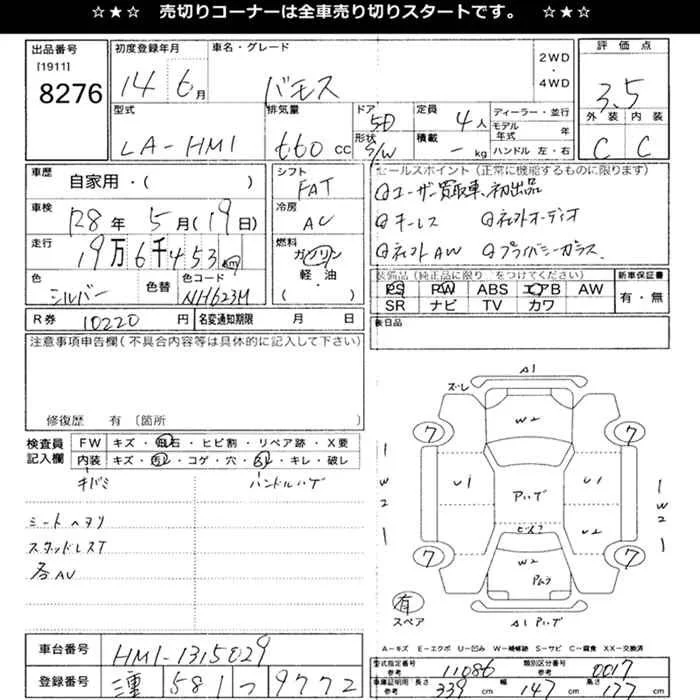 ☆★☆ 売切りコーナーは全車売り切りスタートです。 ☆★☆
出品番号
[1911]
8276
初度登録年月
14 6月
車名・グレード
バモス
2WD
・
4WD
評価点
3.5
外装 内装
C C
型式
LA-HM1
排気量
660 cc
ドア
5D
形状
S/W
定員
4人
積載
- kg
ディーラー・並行
モデル年式 年
ハンドル 左・右
車歴
自家用・( )
シフト
FAT
セールスポイント (正常に機能するものに限ります)
ユーザー買取車、初出品
キーレス 社外オーディオ
社外AW プライバシーガラス
車検
R8年 5月(19日)
冷房
AC
走行
19万6千453km
燃料
ガソリン
軽・油
( )
色
シルバー
色替
色コード
NH623M
装備品 (純正品に限り をつけてください)
新車保証書
PS PW ABS エアB AW
有・無
SR ナビ TV カワ
R券 10220円
名変通知期限 月 日
後日品
注意事項申告欄 (不具合内容等は具体的に記入して下さい)
修復歴 有 〔箇所
検査員
記入欄
FW キズ・飛石・ヒビ割・リペア跡・X要
内装 キズ・汚レ・コゲ・穴・スレ・キレ・破レ
キバミ ハンドルハゲ
シートヘタリ
スタッドレスT
A1
ズレ
W2
7 7
1
W
2
1
U1
U1
U2
1
W
2
1
W2
7 7
有
スペア
A-キズ E-エクボ U-凹み W-補修跡 S-サビ C-腐食 XX-交換済
車台番号
HM1-1315029
登録番号
三重 581 つ 9772
型式指定番号
参考
11086
類別区分番号
参考
0017
車庫証明用
参考
長さ
339 cm
幅
147 cm
高さ
177 cm